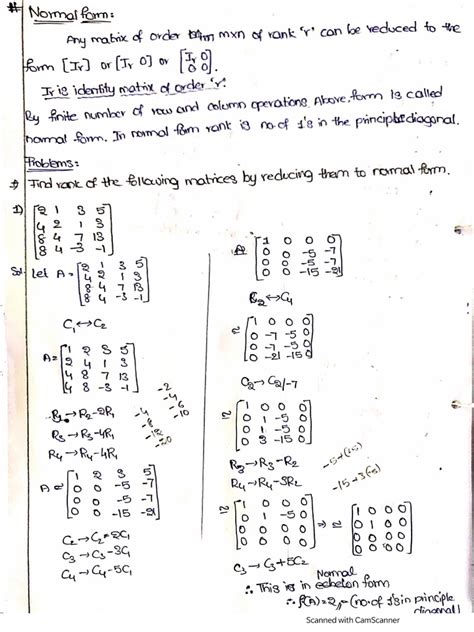 # Normal form:
Any matrix of order m×n of rank 'r' can be reduced to the
form [Ir] or [Ir 0] or [Ir 0
0 0].
Ir is identity matrix of order 'r'.
By finite number of row and column operations. Above form is called
normal form. In normal form rank is no.of 1's in the principle diagonal.
Problems:
Find rank of the following matrices by reducing them to normal form.
1) [2 1 3 5
4 2 1 3
8 4 7 13
8 4 -3 -1]
Sol: let A = [2 1 3 5
4 2 1 3
8 4 7 13
8 4 -3 -1]
C1↔C2
A = [1 2 3 5
2 4 1 3
4 8 7 13
4 8 -3 -1]
R2→R2-2R1
R3→R3-4R1
R4→R4-4R1
-2
-4 -6
-4 -8 -10
-12 -20
A ≅ [1 2 3 5
0 0 -5 -7
0 0 -5 -7
0 0 -15 -21]
C2→C2-2C1
C3→C3-3C1
C4→C4-5C1
A≅ [1 0 0 0
0 0 -5 -7
0 0 -5 -7
0 0 -15 -21]
C2↔C4
≅ [1 0 0 0
0 -7 -5 0
0 -7 -5 0
0 -21 -15 0]
C2→C2/-7
≅ [1 0 0 0
0 1 -5 0
0 1 -5 0
0 3 -15 0]
R3→R3-R2
R4→R4-3R2
-5+(+5)
-15+3(+5)
≅ [1 0 0 0
0 1 -5 0
0 0 0 0
0 0 0 0] ⇒ ≅ [1 0 0 0
0 1 0 0
0 0 0 0
0 0 0 0]
C3→C3+5C2
Normal
∴ This is in echelon form
∴ ρ(A)=2 (no.of 1's in principle
diagonal)
Scanned with CamScanner